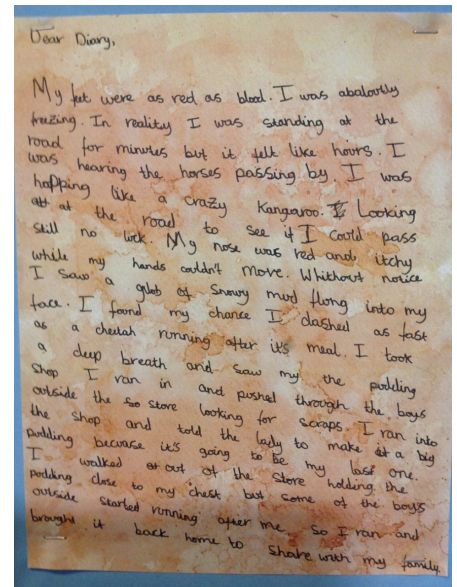 Dear Diary,
My feet were as red as blood. I was abaloutly
freezing. In reality I was standing at the
road for minutes but it felt like hours. I
was hearing the horses passing by. I was
hopping like a crazy Kangaroo. Looking
at the road to see if I could pass
still no luck. My nose was red and itchy
while my hands couldn't move. Whithout notice
I saw a glob of snowy mud flong into my
face. I found my chance I dashed as fast
as a cheetah running after it's meal. I took
a deep breath and saw my the pudding
shop I ran in and pushed through the boys
outside the so store looking for scraps. I ran into
the shop and told the lady to make it a big
pudding because it's going to be my last one.
I walked out of the store holding the
pudding close to my chest but some of the boys
outside started running after me so I ran and
brought it back home to share with my family.